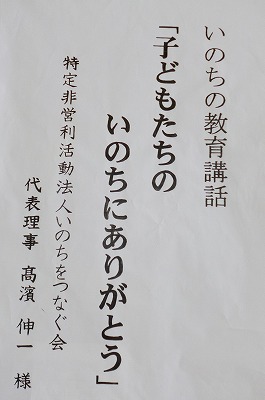 いのちの教育講話
「子どもたちの
いのちにありがとう」
特定非営利活動法人いのちをつなぐ会
代表理事 髙濱 伸一 様